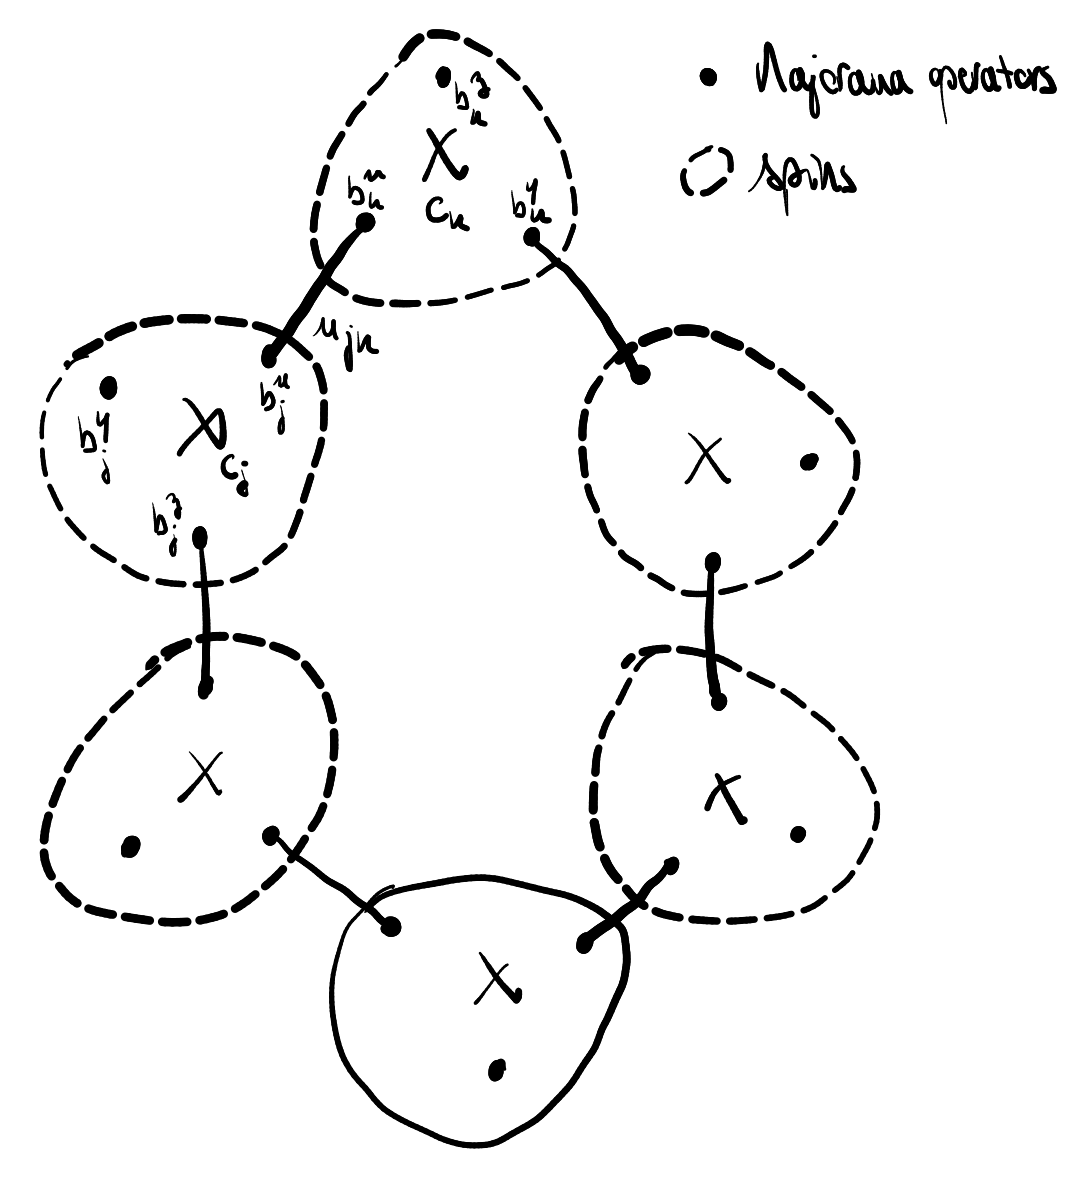 Majorana operators
b_k^z
spins
b_k^x
c_k
b_k^y
u_jk
b_j^x
b_j^y
c_j
b_j^z